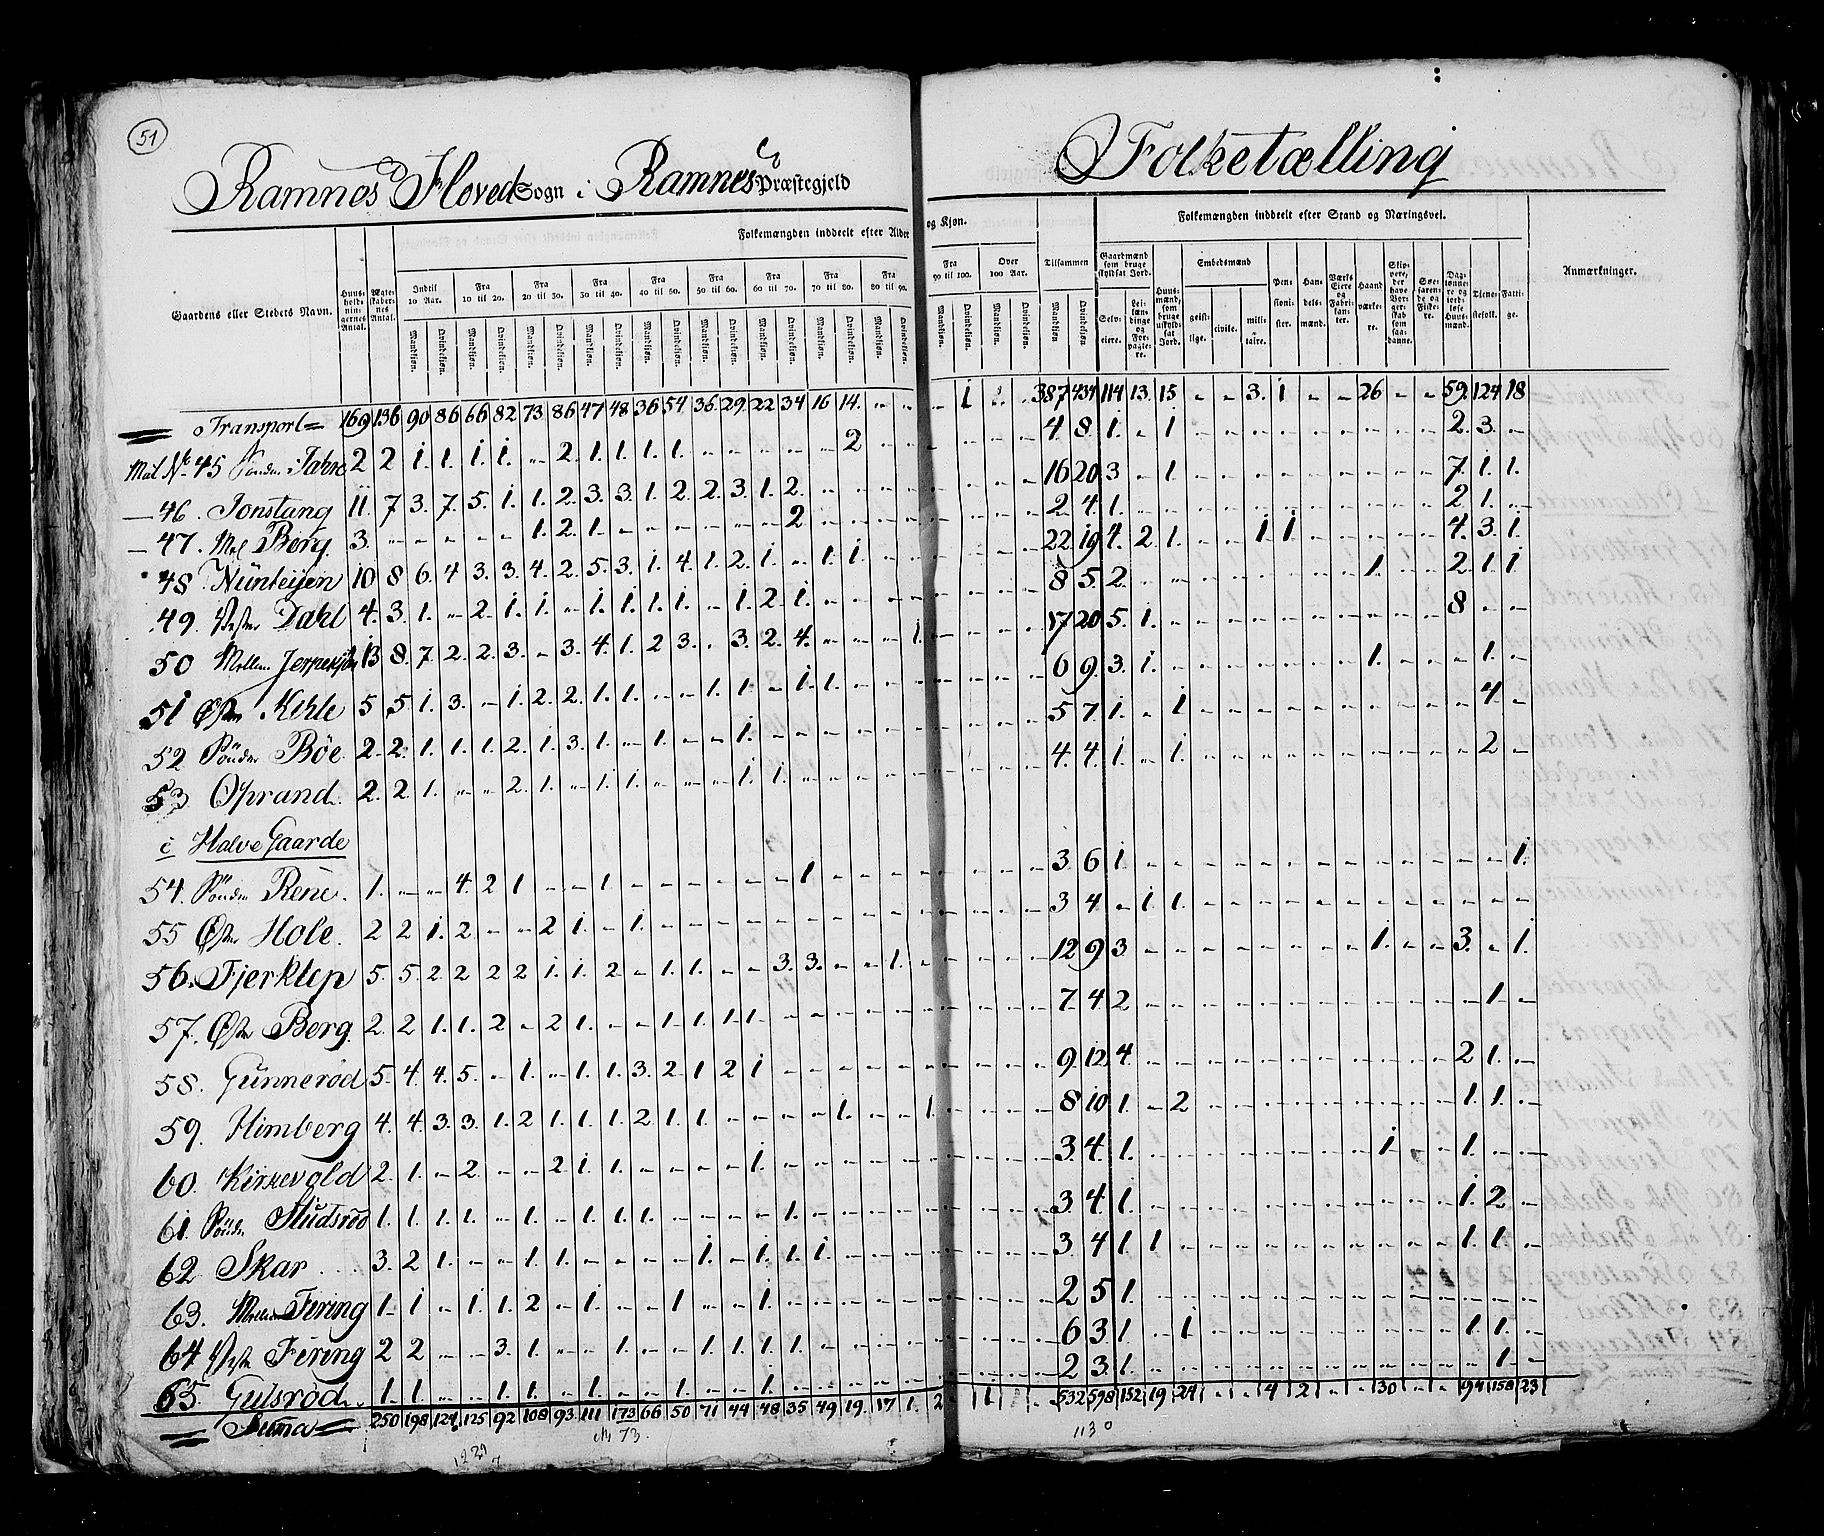 51
Ramnes Hoved Sogn i Ramnes Præstegjeld
Folketælling
Gaardens eller Stedets Navn.
Huus-holdnin-gernes Antal.
Ægte-skaber-nes Antal.
Folkemængden inddeelt efter Alder
og Kjøn.
Indtil 10 Aar.
Fra 10 til 20.
Fra 20 til 30.
Fra 30 til 40.
Fra 40 til 50.
Fra 50 til 60.
Fra 60 til 70.
Fra 70 til 80.
Fra 80 til 90.
Fra 90 til 100.
Over 100 Aar.
Tilsammen
Mandkjøn. Qvindekjøn.
Folkemængden inddeelt efter Stand og Næringsvei.
Gaardmænd som bruge skyldsat Jord.
Selv-eiere.
Lei-læn-dinge og For-pagte-re.
Huus-mænd, som bruge uskyld-sat Jord.
Embedsmænd
geist-lige.
civile.
mili-taire.
Pen-sioni-ster.
Han-dels-mænd.
Værks Eiere og Fabri-kan-ter.
Haand værke-re.
Dag-lønne-re og jord-løse Huus-mænd.
Tjene-stefolk.
Fatti-ge.
Anmærkninger.
Transport 169 136 90 86 66 82 73 86 47 48 36 54 36 29 22 34 16 14 .. .. - 1 387 434 114 13 15 - - 3. 1 - - 26 - - 59 124 18
Mat No 45 Søndre Jahre 2 2 1. 1. 1. 1. - 2. 1. 1. 1. 1. - - - - - 2 4 8. 1. - 1 2. 3. -
46. Jonstang 11. 7 3. 7. 5. 1. 1. 2. 3. 3. 1. 2. 2. 3. 1. 2. 16 20 3 - 1 7. 1. 1.
47. Berg 3. - - - - - 1. 2. 1. - - - - - - 2 2 4. 1. 2 1. -
48 10 8 6. 4 3. 3. 4. 2. 5. 3. 1. 4. 1. 2. 1. - 1. 1. 22 19 4. 2. 1. - - 1 1 4. 3. 1.
49. Vester Dahl 4. 3. 1. - 2. 1. 1. - 1. 1. 1. 1. - 1. 2. 1. 8 5. 2. 1. 2. 1. 1
50 Mellem 13 8. 7. 2. 2. 3. - 3. 4. 1. 2 3. . 3. 2. 4. - - - 1. 17 20 5. 1. 8 - -
51 Øster 5 5. 1. 3. - 1. 2. 2. 1. 1. - - 1. 1. - 1. 1. 6 9. 3. 1. 1. 1. -
52 Søndre Böe 2. 2. 1. 1. 1. 2. 1. 3. 1. - 1. - - 1. 5 7. 1. - 1 4. -
53 Oprand. 2. 2. 1. - - 2. 1. - 1. 1. - - - 1. 1. 4. 4. 1. - 1. 2 -
c Halve Gaarde
54. Söndre Rene. 1. - - 4. 2 1 - - 1 - - - - - - 1 3 6 1. 1.
55 Øster Hole. 2 2 1. 2. - - 2 1. - 1. 3 4. - 1 1.
56. Fjerklep 5. 5. 2 2 2 2 1. 1. 2. - 1. 1. - - 3. 3. - - 1. 12 9. 3 1. - - 3. - 1.
57. Øster Berg. 2. 2 1. 1. 2 - 2 1. - - 1. 1. 1. 1. 7. 4 2 1. -
58. Günnerød 5. 4. 4. 5. - 1. - 1. 1. 3. 2. 1 2 1 9. 12. 4. 2 1. -
59. Himberg 4. 4. 3. 3. 1. 2 1. 1. 1. 2 1. 1. - - - - 1. - - 1. 8 10 1. - 2 1. 1. -
60. Kirkevold 2. 1. - 2. - - 2 1. 1. - - - - 1. 3. 4. 1. 1 - - 1. -
61. Søndr. 1. 1. 1. 1. - 1. - 1. 1. 1. - - - - 1. 3. 4. 1. 1. 2. -
62 Skar 3. 2 1. - - 1. 1. - - - - 1. - 1. 1. 1. 3 4 1. 1 1. 1. -
63. Mellem Fering 1. 1 - 1. 1. 2 - 1 - - 1 - - 1. 2 5 1.
64 Vestre Fering 2 2 - - 3. 1. - - 1. - - 1. 1. 1. 1. 6 3 1. - 1 1. 1. -
65. Gulsröd. 1. 1. - - 1. 1. - 1. - - 1. - - 1. 2 3. 1. 1. -
Suma 250 198 124 125 92 108 93 111 173 66 50 71 44 48 35 49 19. 17 1. 2 1 532 598 152 19 24 - - 4 2 - - 30 - - 94 158 23
73.
1130